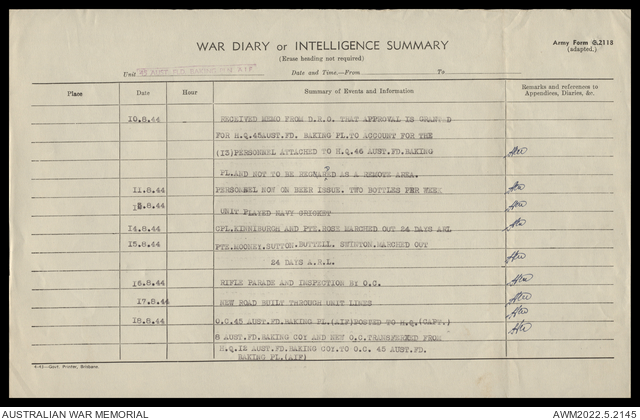 WAR DIARY or INTELLIGENCE SUMMARY
Army Form C.2118
(adapted.)
(Erase heading not required)
Unit 45 AUST. FD. BAKING PLT A.I.F Date and Time:—From To
Place Date Hour Summary of Events and Information Remarks and references to
Appendices, Diaries, &c.
10.8.44 RECEIVED MEMO FROM D.R.O. THAT APPROVAL IS GRANTED
FOR H.Q.45AUST.FD. BAKING PL.TO ACCOUNT FOR THE
(13)PERSONNEL ATTACHED TO H.Q.46 AUST.FD.BAKING
PL.AND NOT TO BE REGARGED AS A REMOTE AREA.
11.8.44 PERSONNEL NOW ON BEER ISSUE. TWO BOTTLES PER WEEK
.8.44 UNIT PLAYED NAVY CRICKET
14.8.44 CPL.KINNIBURGH AND PTE.ROSE MARCHED OUT 24 DAYS ARL
15.8.44 PTE.MOONEY.SUTTON.BUTTELL. SWINTON.MARCHED OUT
24 DAYS A.R.L.
16.8.44 RIFLE PARADE AND INSPECTION BY O.C.
17.8.44 NEW ROAD BUILT THROUGH UNIT LINES
18.8.44 O.C.45 AUST.FD.BAKING PL.(AIF)POSTED TO H.Q.(CAPT.)
8 AUST.FD.BAKING COY AND NEW O.C.TRANSFERRED FROM
H.Q.12 AUST.FD.BAKING COY.TO O.C. 45 AUST.FD.
BAKING PL.(AIF)
4-43—Govt. Printer, Brisbane.
AUSTRALIAN WAR MEMORIAL AWM2022.5.2145